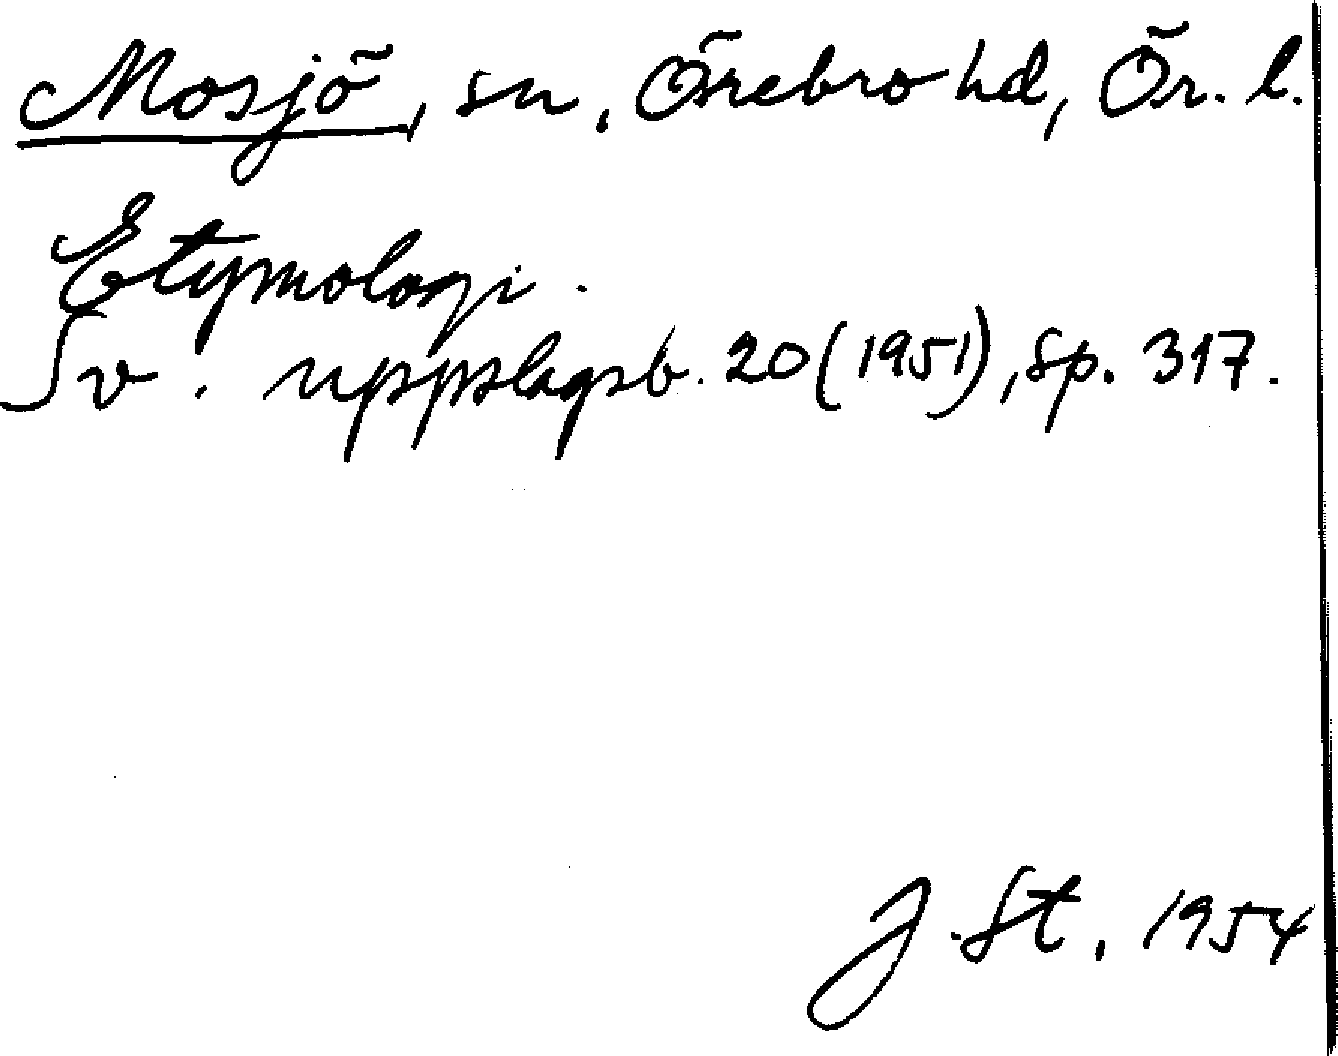 Mosjö, sn, Örebro hd, Ör. l.
Etymologi.
Sv. uppslagsb. 20 (1951), sp. 317.
J. St. 1954